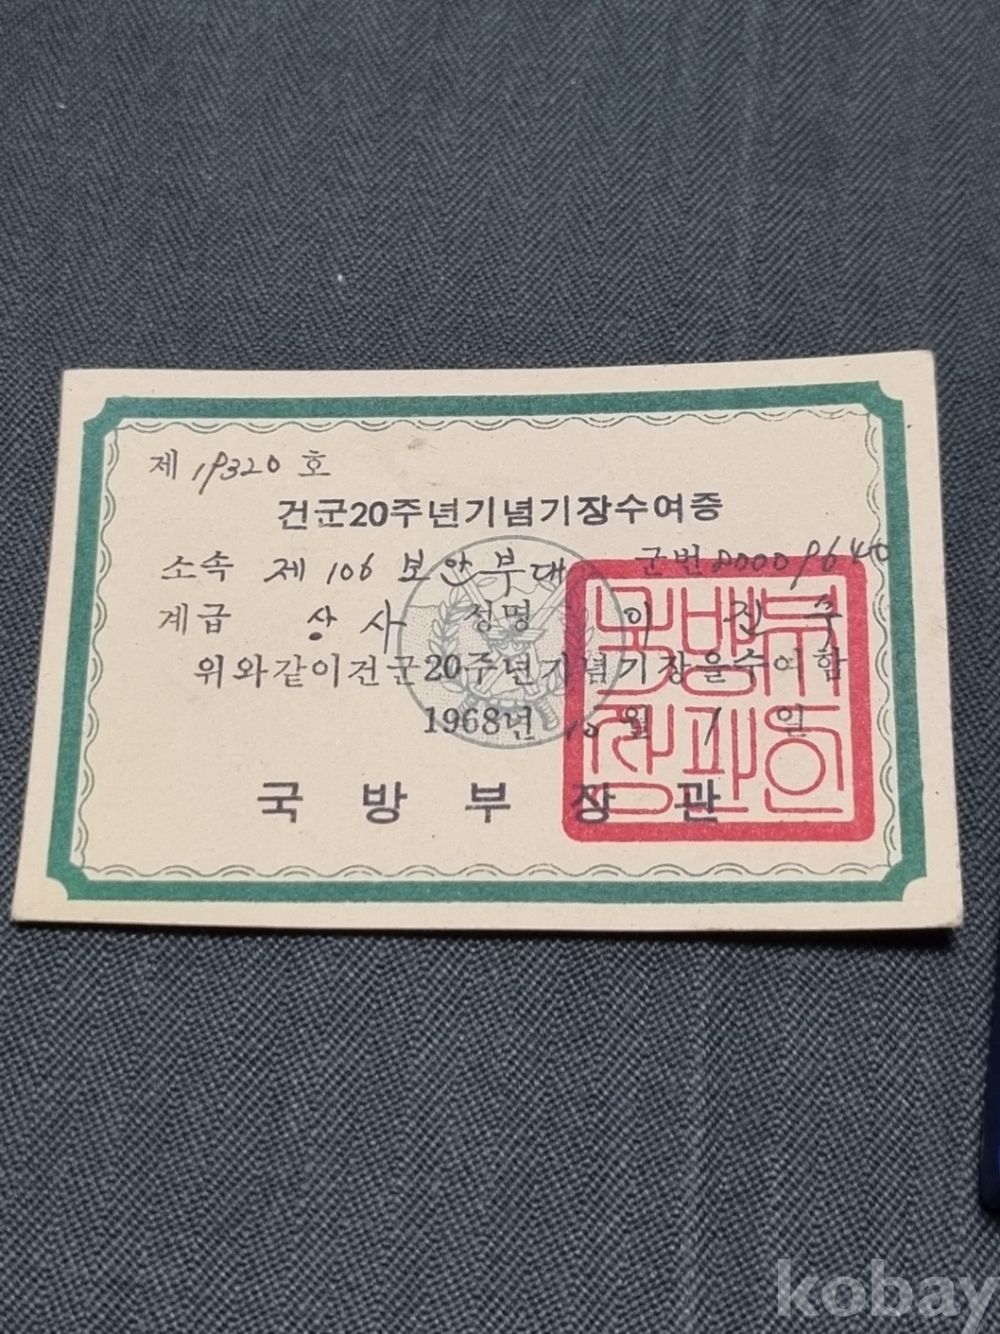 제 19320 호
건군20주년기념기장수여증
소속 제 106 보안부대 군번 80009640
계급 상사 성명 이 진 수
위와같이건군20주년기념기장을수여함
1968년 10월 1일
국방부장관
국방부
장관인
kobay